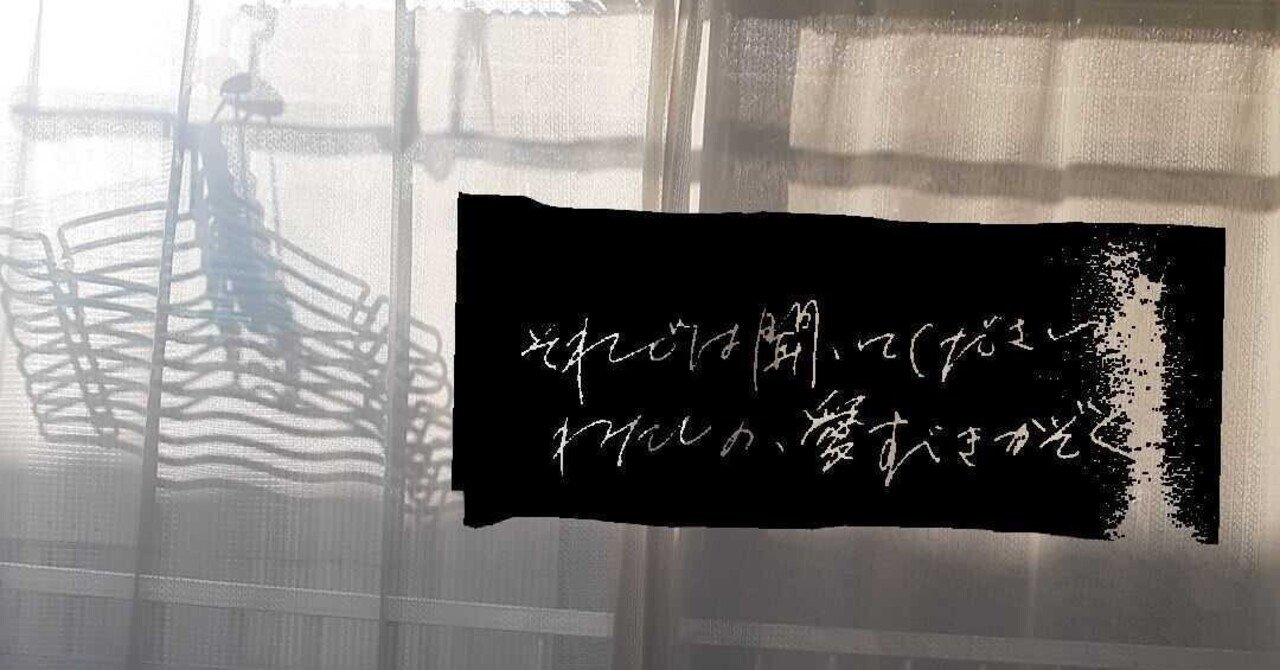 それでは聞いてください
わたしの、愛すべきかぞく